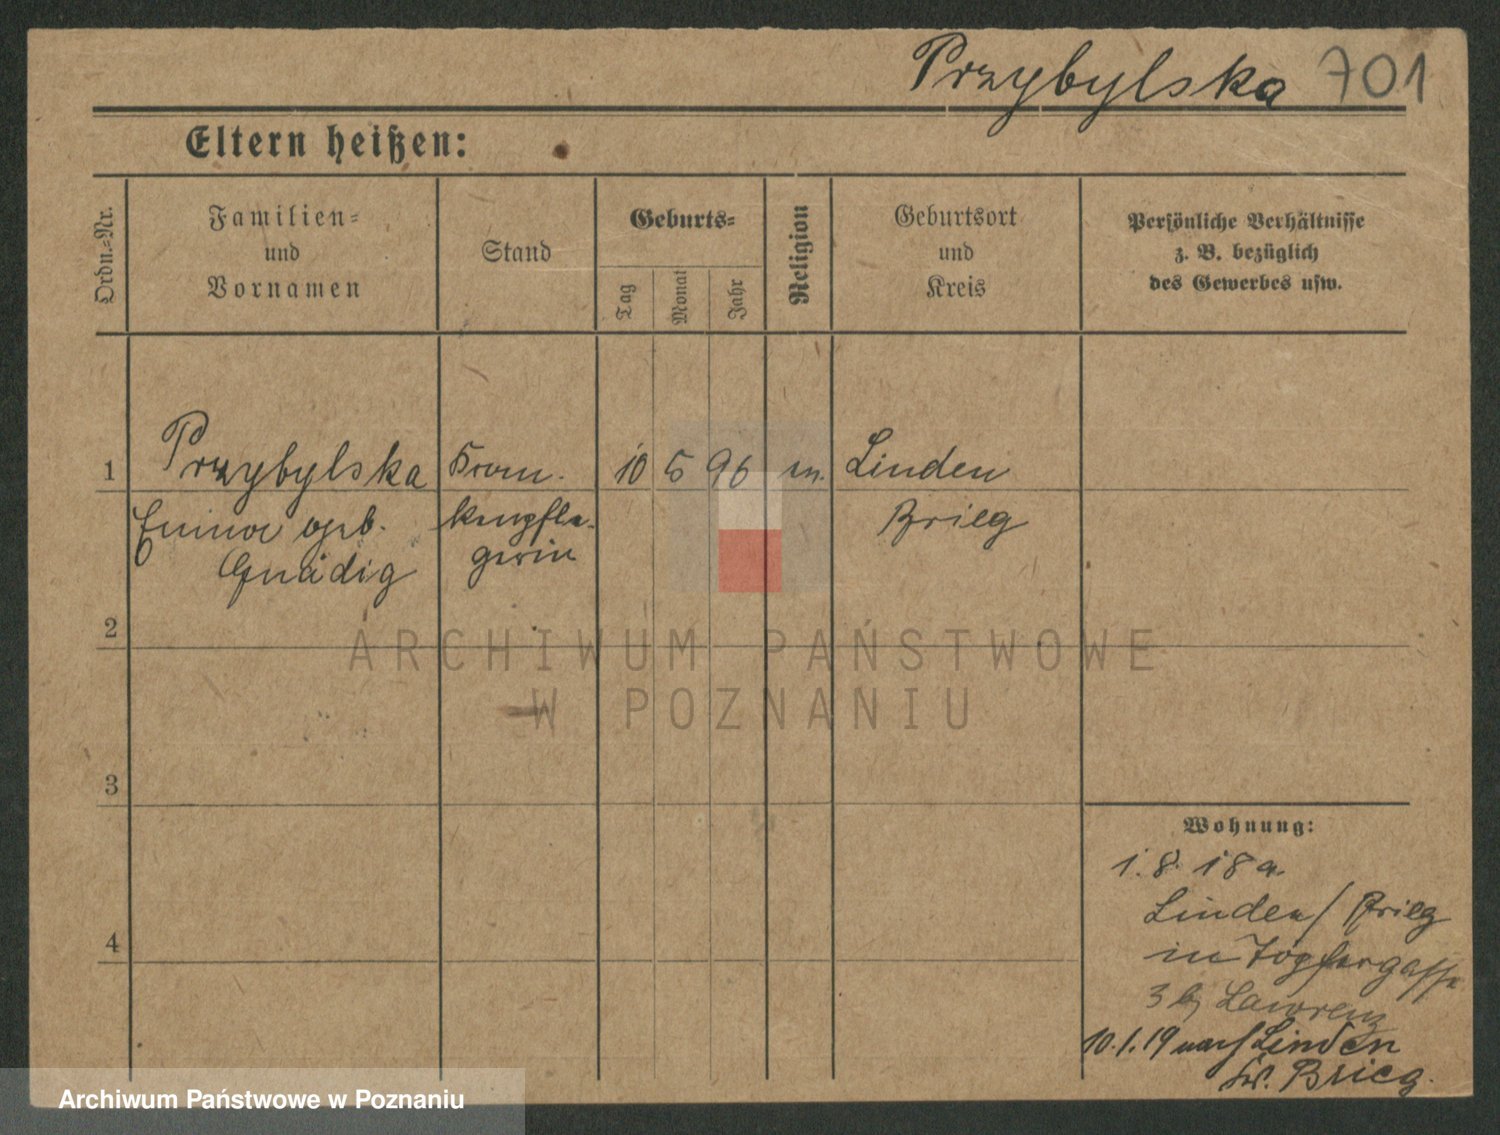 Przybylska 701
Eltern heißen:
Ordn.=Nr.
Familien=
und
Vornamen
Stand
Geburts=
Tag
Monat
Jahr
Religion
Geburtsort
und
Kreis
Persönliche Verhältnisse
z. B. bezüglich
des Gewerbes usw.
1 Przybylska Kran- 10 5 96 Linden
Emma geb. kenpfle- Brieg
Gnädig gerin
2
ARCHIWUM PAŃSTWOWE
W POZNANIU
3
Wohnung:
1. 8. 18 a.
Linden/Brieg
in Töpfergasse
3 b/ Lawrenz
4
10.1.19 nach Linden
Kr. Brieg.
Archiwum Państwowe w Poznaniu